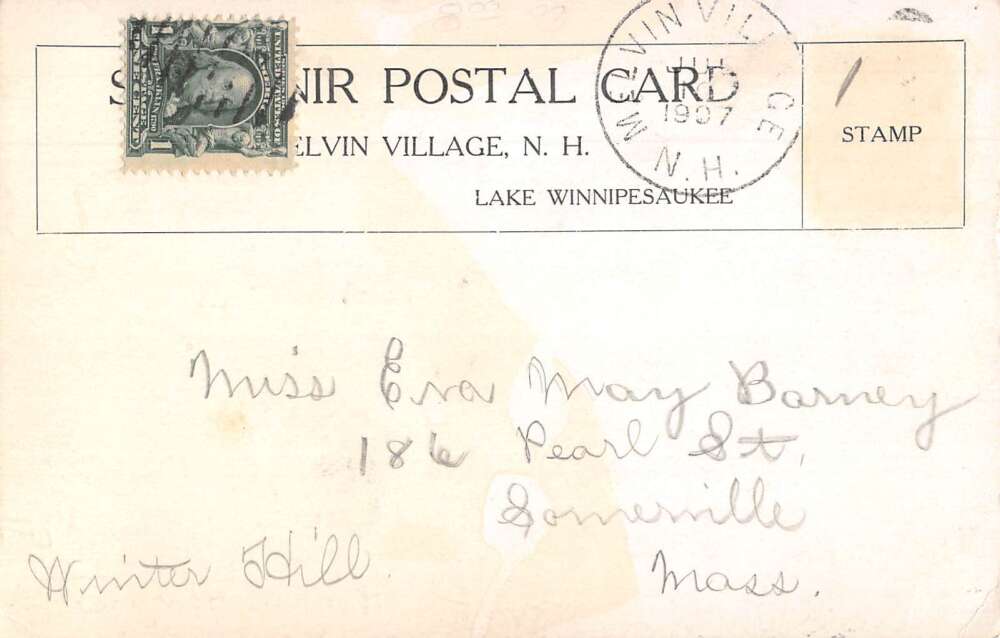 NIR POSTAL CARD
ELVIN VILLAGE, N. H.
LAKE WINNIPESAUKEE
STAMP
MELVIN VILL GE
1907
N.H.
1
Miss Eva May Barney
186 Pearl St,
Somerville
Mass.
Winter Hill.